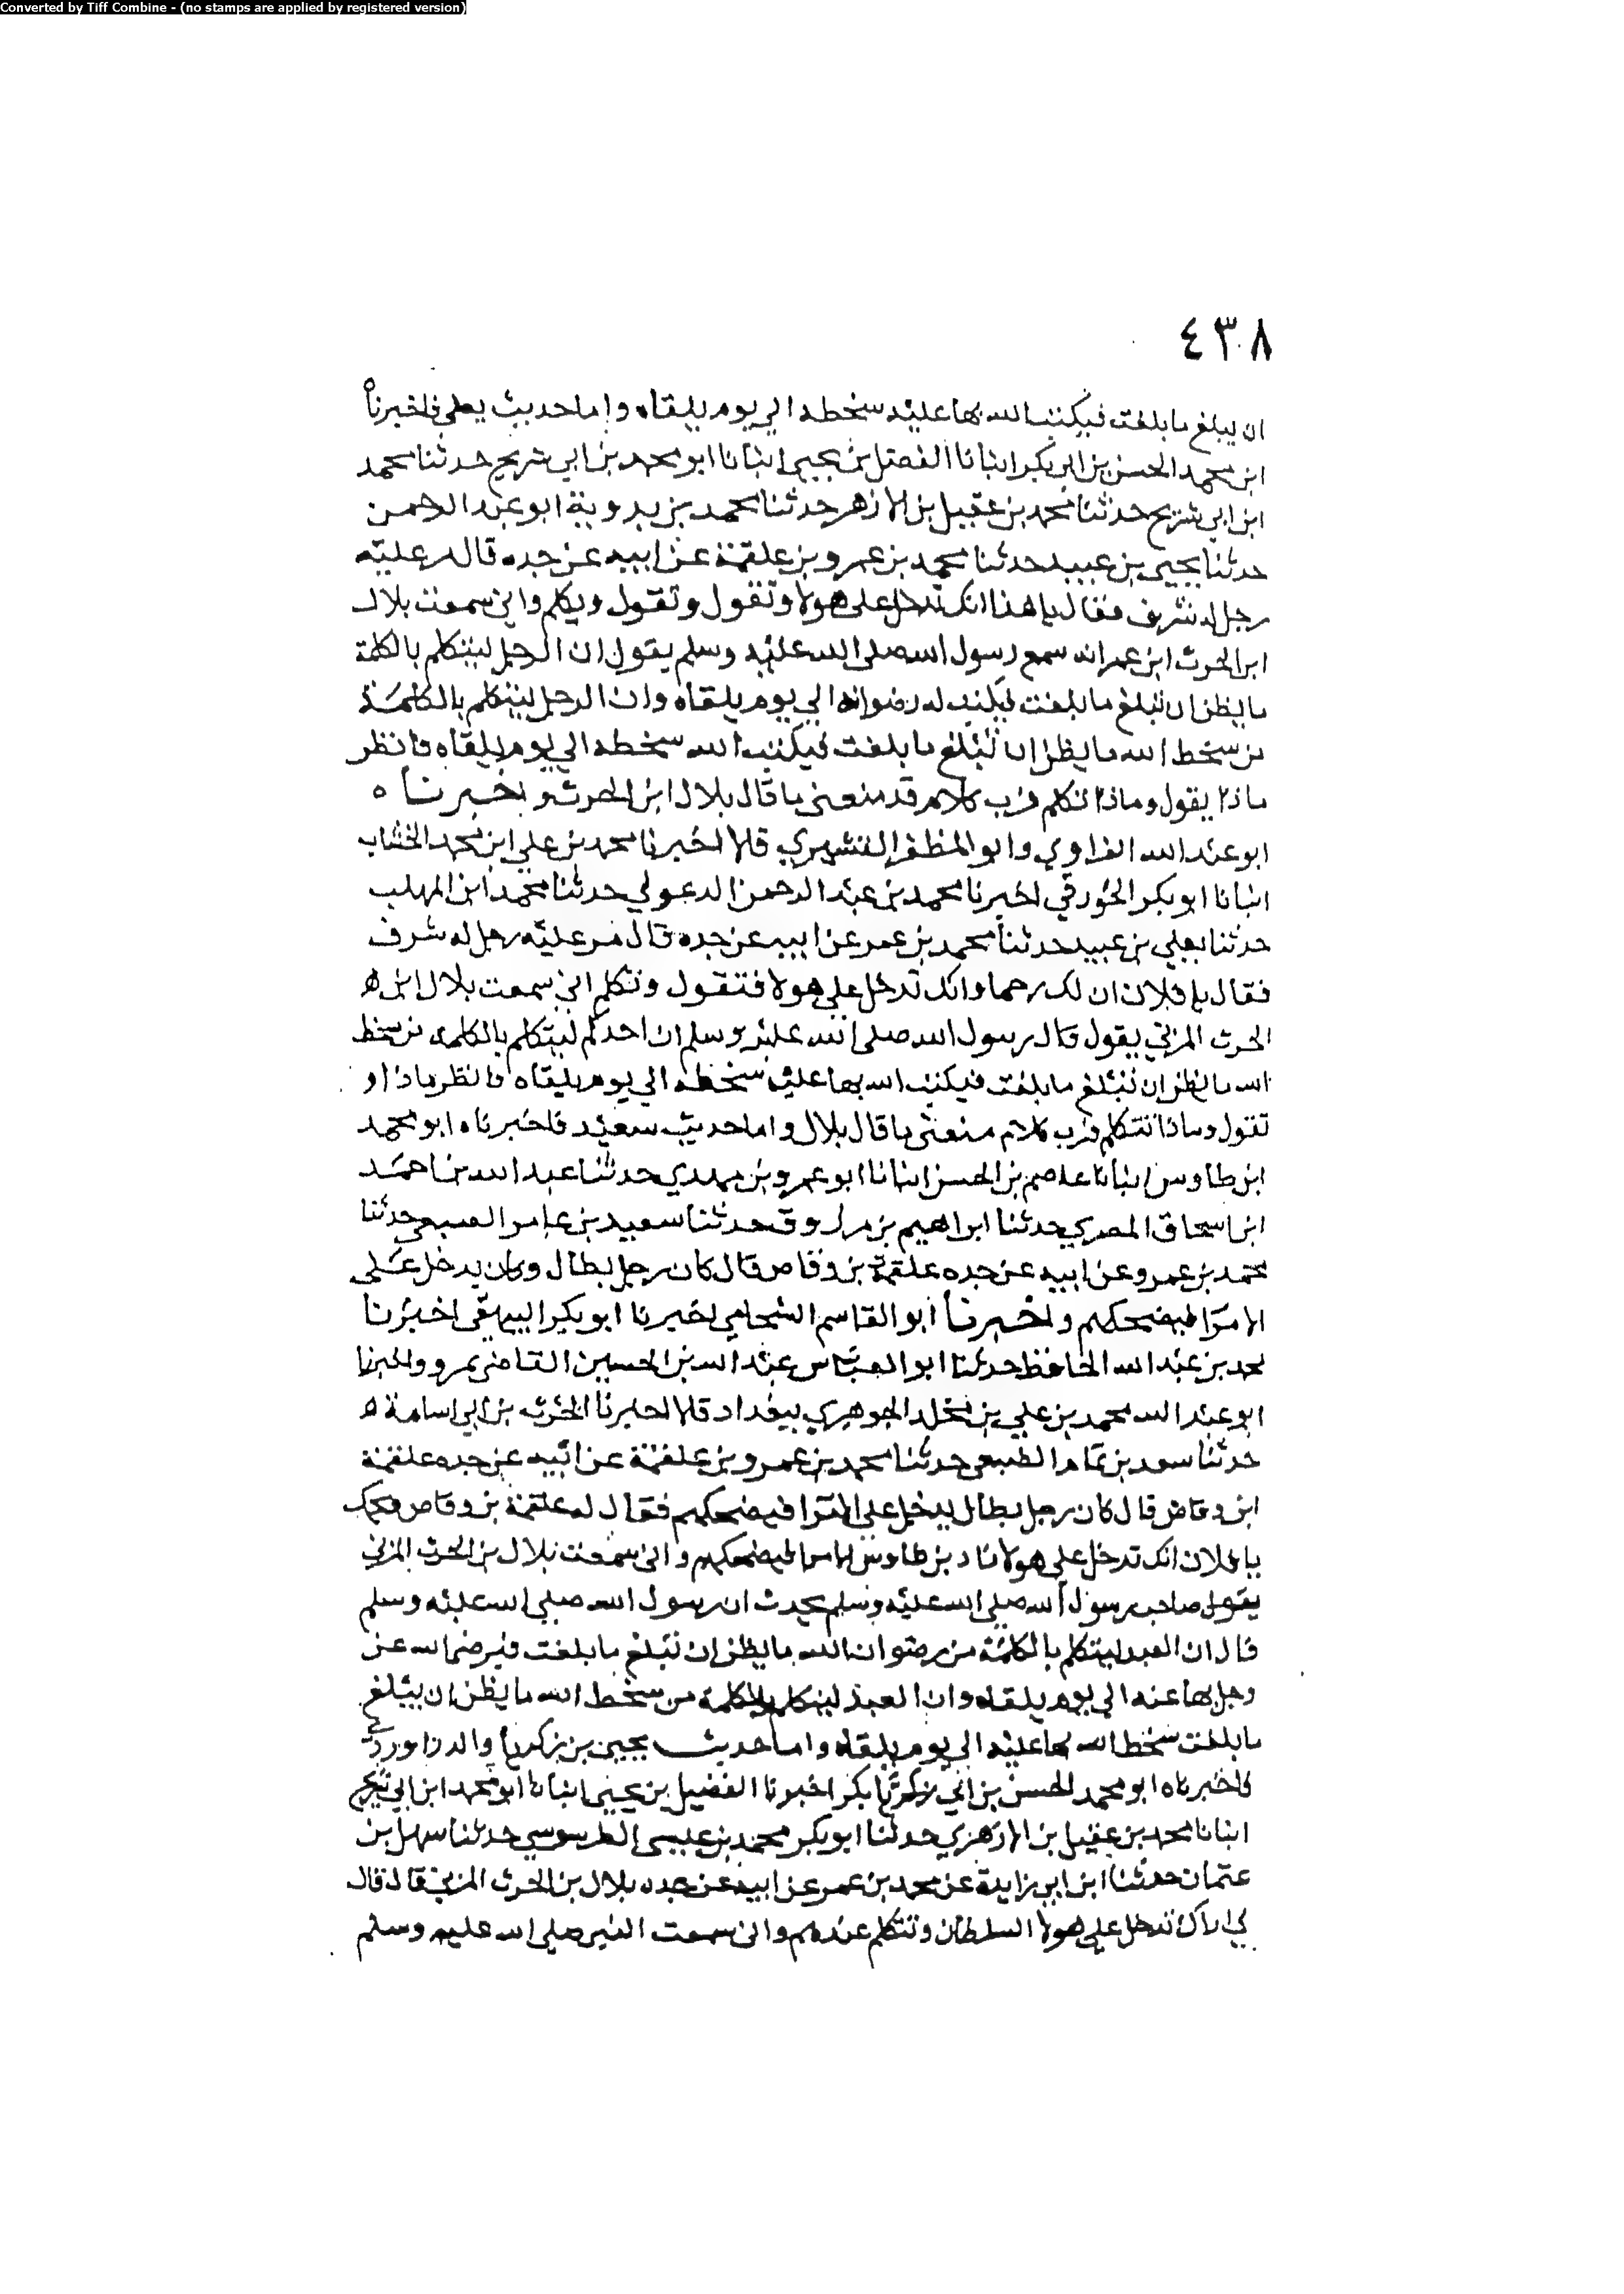 Converted by Tiff Combine - (no stamps are applied by registered version)
٤٣٨
ان يبلغ ما بلغت فيكتب الله بها عليه سخطه الي يوم يلقاه واما حديث يعلى فاخبرناه
ابن محمد الحسن بن ابي بكر انبانا الفضل بن يحيى انبانا ابو محمد بن ابي شريح حدثنا محمد
ابن ابي شريح حدثنا محمد بن عقيل بن الازهر حدثنا محمد بن يدوية ابو عبد الرحمن
حدثنا يحيى بن عبيد حدثنا محمد بن عمرو بن علقمة عن ابيه عن جده قال مر عليه
رجل له شرف فقال يا هذا انك تدخل على هولا وتقول وتقول ويكلم واني سمعت بلال
ابن الحرث ابن عمرانه سمع رسول الله صلى الله عليه وسلم يقول ان الرجل ليتكلم بالكلمة
ما يظن ان تبلغ ما بلغت فيكتب له رضوانه الي يوم يلقاه وان الرجل ليتكلم بالكلمة
من سخط الله ما يظن ان تبلغ ما بلغت فيكتب الله سخطه الي يوم يلقاه فانظر
ماذا يقول وماذا تكلم فرب كلام قد منعني ما قال بلال ابن الحرث واخبرنا ه
ابو عبد الله الفراوي وابو المظفر القشيري قالا اخبرنا محمد بن علي ابن محمد الخشاب
انبانا ابو بكر الجوزقي اخبرنا محمد بن عبد الرحمن الدعولي حدثنا محمد ابن المهلب
حدثنا يعلي بن عبيد حدثنا محمد بن عمر عن ابيه عن جده قال مر عليه رجل له شرف
فقال يا فلان ان لك رحما وانك تدخل على هولا فتقول وتتكلم اني سمعت بلال ابن ه
الحرث المزني يقول قال رسول الله صلى الله عليه وسلم ان احدكم ليتكلم بالكلمه من سخط
الله ما يظن ان تبلغ ما بلغت فيكتب الله بها عليه سخطه الي يوم يلقاه فانظر ماذا او
تقول وماذا تتكلم فرب كلام منعني ما قال بلال واما حديث سعيد فاخبرناه ابو محمد
ابن طاوس انبانا عاصم بن الحسن انبانا ابو عمرو بن مهدي حدثنا عبد الله بن احمد
ابن اسحاق المصري حدثنا ابراهيم بن مرزوق حدثنا سعيد بن عامر الضبعي حدثنا
محمد بن عمرو عن ابيه عن جده علقمة بن وقاص قال كان رجل بطال وكان يدخل على
الامرا فيضحكهم واخبرنا ابو القاسم الشحامي اخبرنا ابو بكر البيهقي اخبرنا
محمد بن عبد الله الحافظ حدثنا ابو العباس عبد الله بن الحسين القاضي بمرو واخبرنا
ابو عبد الله محمد بن علي بن مخلد الجوهري ببغداد قالا اخبرنا الحرث بن ابي اسامة ه
حدثنا سعد بن عامر الضبعي حدثنا محمد بن عمرو بن علقمة عن ابيه عن جده علقمة
ابن وقاص قال كان رجل بطال يدخل على الامرا فيضحكهم فقال له علقمة بن وقاص ويحك
يا فلان انك تدخل على هولا فيضحكهم واني سمعت بلال بن الحرث المزني
يقول صاحب رسول الله صلى الله عليه وسلم يحدث ان رسول الله صلى الله عليه وسلم
قال ان العبد ليتكلم بالكلمة من رضوان الله ما يظن ان تبلغ ما بلغت فيرضى الله عز
وجل بها عنه الي يوم يلقاه وان العبد ليتكلم بالكلمة من سخط الله ما يظن ان يبلغ
ما بلغت سخط الله بها عليه الي يوم يلقاه واما حديث يحيى بن زكريا والدراوردي
فاخبرناه ابو محمد الحسن بن ابي بكر اخبرنا الفضيل بن يحيى انبانا ابو محمد ابن ابي شريح
انبانا محمد بن عقيل بن الازهري حدثنا ابو بكر محمد بن عيسى الطرسوسي حدثنا سهل بن
عثمان حدثنا ابن ابي زايدة عن محمد بن عمر عن ابيه عن جده بلال بن الحرث المزني قال قال
لي اراك تدخل على هولا السلطان وتتكلم عندهم واني سمعت النبي صلى الله عليه وسلم